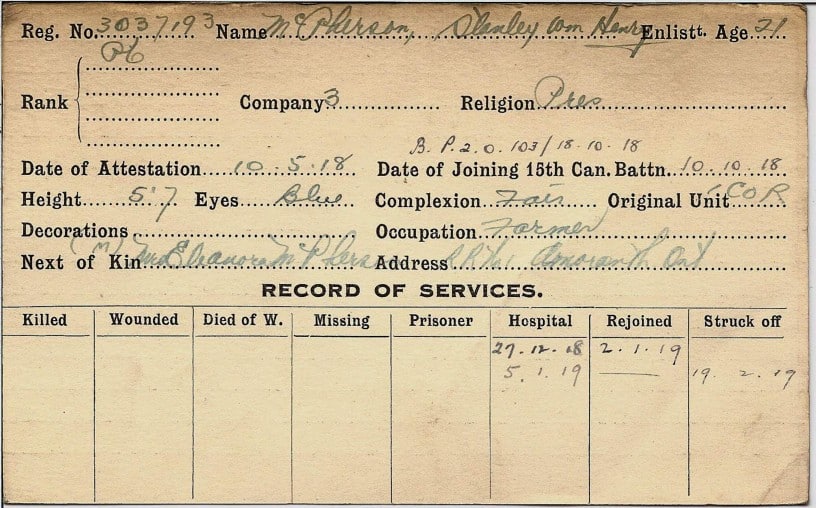 Reg. No. 3037193 Name McPherson, Stanley Wm Henry Enlistt. Age 21
Pte
Rank Company 3 Religion Pres
B. P. 2. O. 103/18-10-18
Date of Attestation 10.5.18 Date of Joining 15th Can. Battn. 10.10.18
Height 5'7 Eyes Blue Complexion Fair Original Unit COR
Decorations Occupation Farmer
(M)
Next of Kin Mrs Eleanora McPherson Address RR No1 Ont
RECORD OF SERVICES.
Killed Wounded Died of W. Missing Prisoner Hospital Rejoined Struck off
27.12.18 2.1.19
5.1.19 19.2.19